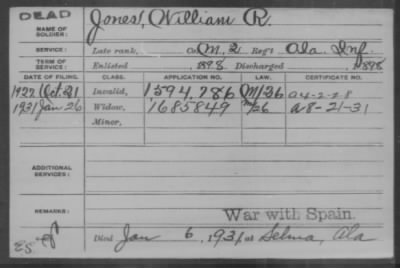 DEAD
NAME OF SOLDIER: Jones, William R.
SERVICE: Late rank, Co. M. 2 Reg't Ala. Inf.
TERM OF SERVICE: Enlisted 1898 Discharged 1898
DATE OF FILING. CLASS. APPLICATION NO. LAW. CERTIFICATE NO.
1927 Oct. 21 Invalid, 1594,786 M/26 a 4-2-28
1931 Jan 26 Widow, 1685849 M/26 a 8-21-31
Minor,
ADDITIONAL SERVICES:
REMARKS: War with Spain.
Died Jan 6, 1931 at Selma, Ala
ES